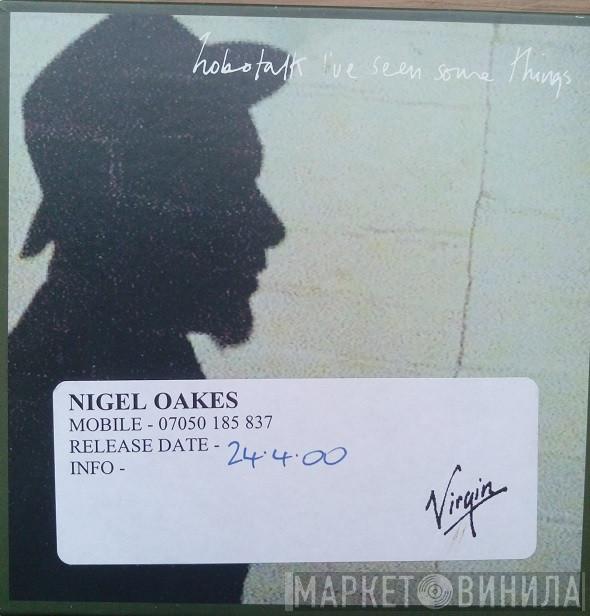 hobotalk i've seen some things
NIGEL OAKES
MOBILE - 07050 185 837
RELEASE DATE - 24.4.00
INFO -
Virgin
МАРКЕТ ВИНИЛА